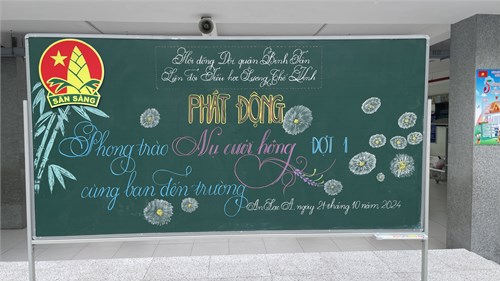 Hội đồng Đội quận Bình Tân
Liên đội Tiểu học Lương Thế Vinh
PHÁT ĐỘNG
Phong trào Nụ cười hồng ĐỢT 1
cùng bạn đến trường
An Lạc A, ngày 21 tháng 10 năm 2024
SẴN SÀNG